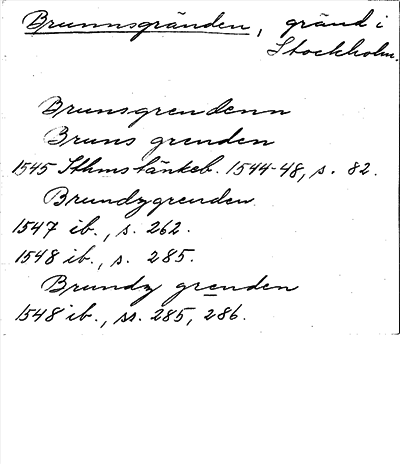 Brunnsgränden, gränd i
Stockholm.
Brunsgrendenn
Bruns grenden
1545 Sthms tänkeb. 1544-48, s. 82.
Brundzgrenden
1547 ib., s. 262.
1548 ib., s. 285.
Brundz grenden
1548 ib., ss. 285, 286.